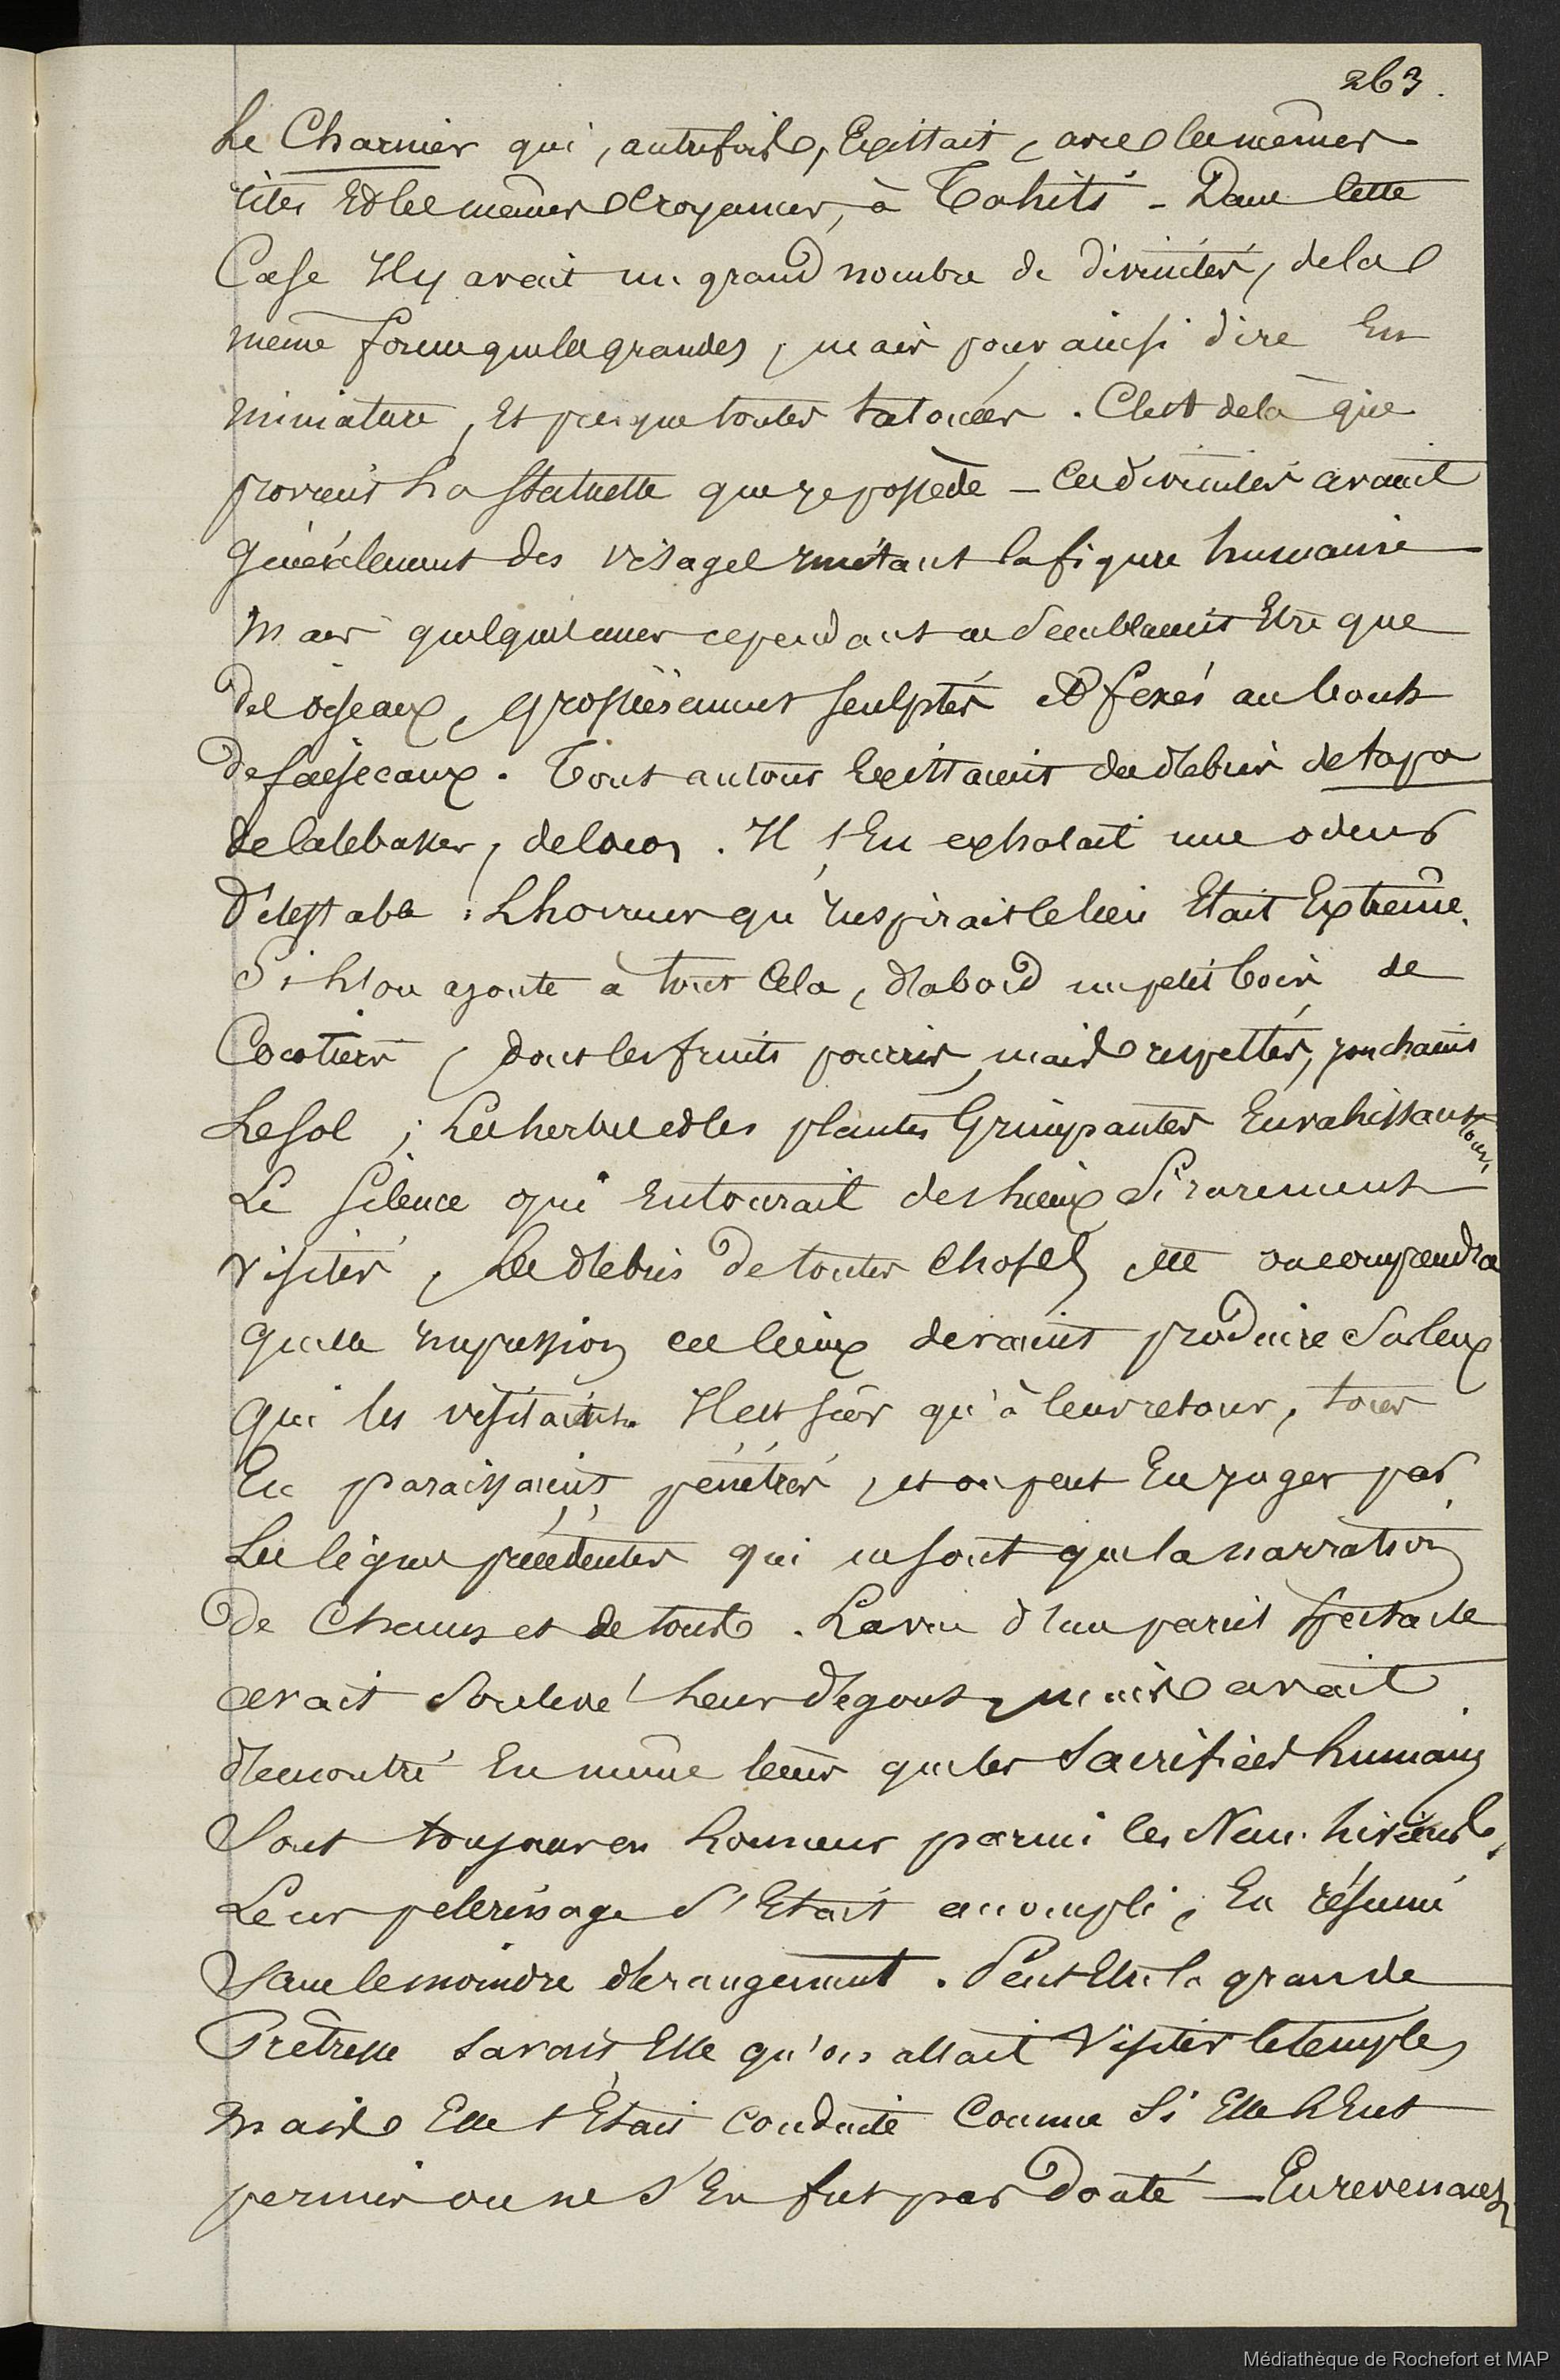 263.
Le Charnier qui, autrefois, Existait, avec les mêmes
rites Et les mêmes Croyances, à Tahiti - Dans Cette
Case Il y avait un grand nombre de divinités, de la
même forme que les grandes, mais pour ainsi dire En
miniature, Et presque toutes tatouées. C'est de là que
provient La Statuette que je possède - Ces divinités avaient
Généralement des visages imitant la figure humaine
Mais quelques unes cependant ne Semblaient Etre que
des oiseaux, grossièrement sculptés et fixés au bout
de faisceaux. Tout autour Existaient des débris de tapa
de Calebasses, de Cocos. Il s'En exhalait une odeur
détestable ; L'horreur qu'inspirait le lieu Etait Extrême.
Si L'on ajoute à tout Cela, d'abord un petit bois de
Cocotiers, dont les fruits pourris, mais respectés, jonchaient
Le Sol ; Les herbes et les plantes Grimpantes Envahissant tout,
Le Silence qui Entourait des Lieux Si rarement
visités, Les débris de toutes Choses, etc on comprendra
quelle impression ces lieux devaient produire Sur Ceux
qui les visitaient. Il est sûr qu'à leur retour, tous
En paraissaient pénétrés, et on peut En juger par
Les lignes précédentes qui ne sont que la narration
de Chacun et de tous. La vue d'un pareil spectacle
avait Soulevé Leur dégout, mais avait
démontré En même temps que les Sacrifices humains
Sont toujours en honneur parmi les Nou-hiviens,
Leur pèlerinage S'Etait accompli, En résumé
Sans le moindre dérangement. Peut Etre la grande
Prêtresse Savait Elle qu'on allait Visiter le temple,
mais Elle s'Etait Conduite Comme Si Elle L'Eut
permis ou ne S'En fut pas douté — En revenant
Médiathèque de Rochefort et MAP